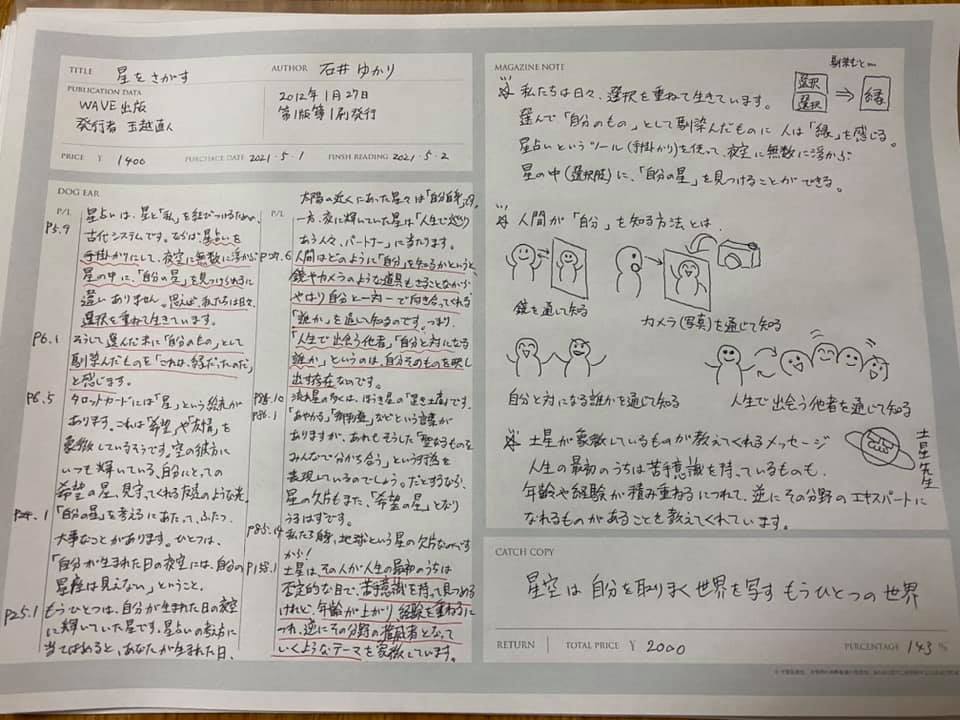 TITLE 星をさがす
AUTHOR 石井 ゆかり
PUBLICATION DATA
WAVE出版
発行者 玉越直人
2012年1月27日
第1版第1刷発行
PRICE ¥ 1400
PURCHACE DATE 2021・5・1
FINISH READING 2021・5・2
DOG EAR
P/L
P5.9 星占いは、星と「私」を結びつけるための、
古代システムです。ならば、星占いを
手掛かりにして、夜空に無数に浮かぶ
星の中に、「自分の星」を見つけられるに
違いありません。思えば、私たちは日々、
選択を重ねて生きています。
P6.1 そうして選んだ末に「自分のもの」として
馴染んだものを「これは、縁だったのだ」
と感じます。
P6.5 タロットカードには「星」という絵札が
あります。これは「希望」や「友情」を
象徴しているそうです。空の彼方に
いつも輝いている、自分にとっての
希望の星、見守ってくれる友達のような光。
P24.1 「自分の星」を考えるにあたって、ふたつ、
大事なことがあります。ひとつは、
「自分が生まれた日の夜空には、自分の
星座は見えない」ということ。
P25.1 もうひとつは、自分が生まれた日の夜空
に輝いていた星です。星占いの考え方に
当てはめると、あなたが生まれた日、
P/L
太陽の近くにあった星々は「自分自身」です。
一方、夜に輝いていた星は「人生で巡り
あう人々、パートナー」に当たります。
人間はどのように「自分」を知るかというと、
鏡やカメラのような道具もさることながら、
やはり自分と一対一で向き合ってくれる
「誰か」を通じて知るのです。つまり、
「人生で出会う他者」「自分と対になる
誰か」というのは、自分そのものを映し
出す存在なのです。
流れ星の多くは、ほうき星の「置き土産」です。
「あやかる」「御利益」などという言葉が
ありますが、あれもそうした「聖なるものを
みんなで分かち合う」という行為を
表現しているのでしょう。だとするなら、
星の欠片もまた、「希望の星」となり
うるはずです。
私たち自身、地球という星の欠片なのです
から!
P158.1 土星は、その人が人生の最初のうちは
否定的な目で、苦手意識を持って見つめる
けれど、年齢が上がり、経験を重ねるに
つれ、逆にその分野の権威者となって
いくようなテーマを象徴しています。
MAGAZINE NOTE
☆ 私たちは日々、選択を重ねて生きています。
選んで「自分のもの」として馴染んだものに人は「縁」を感じる。
星占いというツール(手掛かり)を使って、夜空に無数に浮かぶ
星の中(選択肢)に、「自分の星」を見つけることができる。
選択
選択
⇒ 縁
☆ 人間が「自分」を知る方法とは.
鏡を通じて知る
カメラ(写真)を通じて知る
自分と対になる誰かを通じて知る
人生で出会う他者を通じて知る
☆ 土星が象徴しているものが教えてくれるメッセージ
人生の最初のうちは苦手意識を持っているものも、
年齢や経験が積み重ねるにつれて、逆にその分野のエキスパートに
なれるものがあることを教えてくれています。
土星先生
CATCH COPY
星空は自分を取りまく世界を写すもうひとつの世界
RETURN
TOTAL PRICE ¥ 2000
PERCENTAGE 143 %